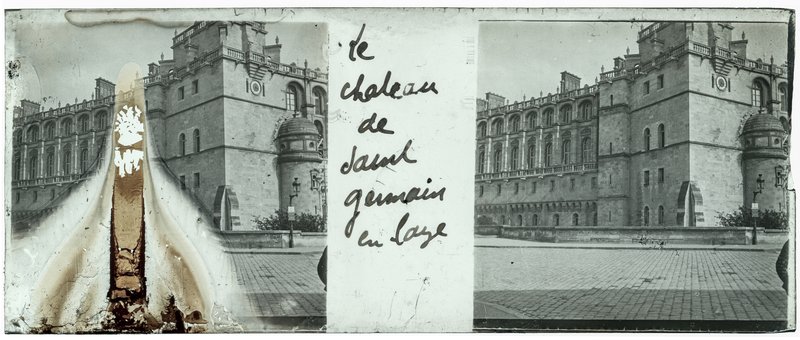 le
chateau
de
saint
germain
en laye